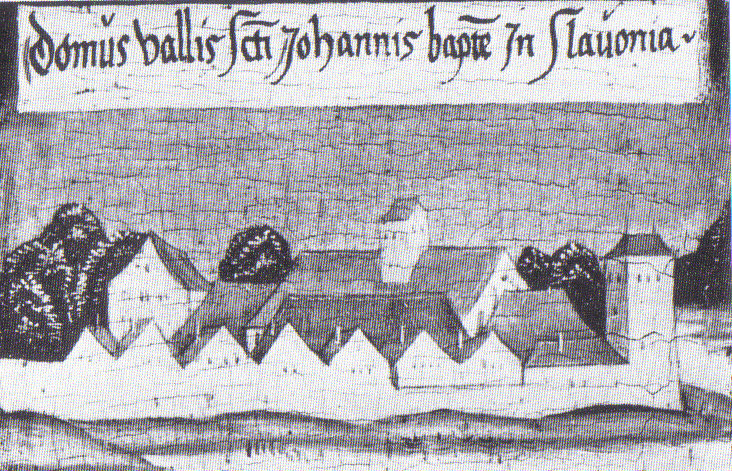 domus vallis scti Johannis bapte In slavonia